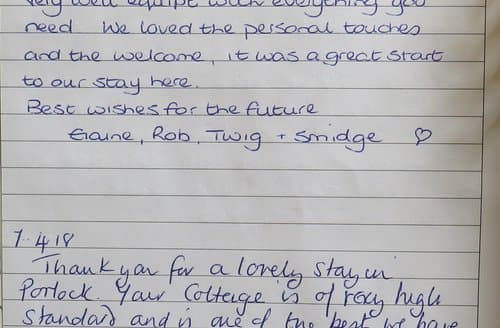 very well equipt with everything you
need We loved the personal touches
and the welcome, it was a great start
to our stay here.
Best wishes for the future
Elaine, Rob, Twig + Smidge ♡
7.4.18
Thank you for a lovely stay in
Porlock. Your Cottage is of very high
Standard and is one of the best we have